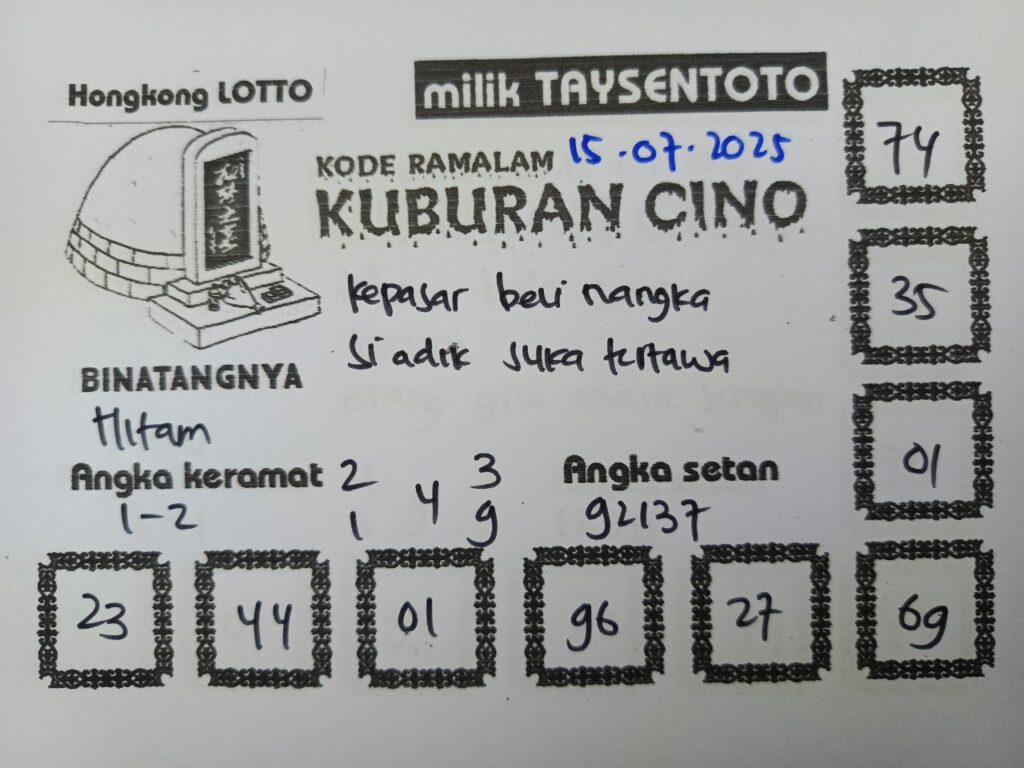 Hongkong LOTTO
milik TAYSENTOTO
KODE RAMALAM 15.07.2025
KUBURAN CINO
kepasar beli nangka
si adik suka tertawa
BINATANGNYA
Hitam
Angka keramat
1-2
2 3
4
1 9
Angka setan
92137
74
35
01
69
23 44 01 96 27